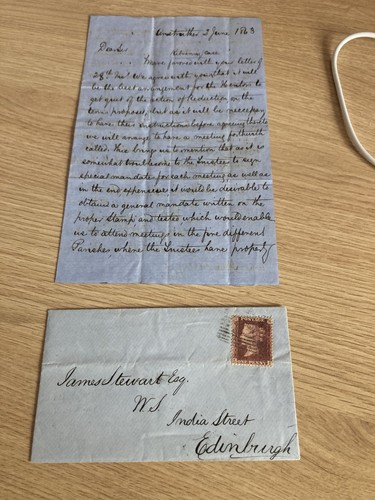 Anstruther 2 June 1863
Dear Sir
Kilrenny case
We are favored with your letter of
28th Inst. We agree with you that it will
be the best arrangement for the Heritors to
get quit of the action of Reduction on the
terms proposed, but as it will be necessary
to have their instructions before agreeing thereto
we will arrange to have a meeting forthwith
called. This brings us to mention that as it is
somewhat troublesome to the Trustees to sign
special mandates for each meeting as well as
in the end expensive it would be desirable to
obtain a general mandate written on the
proper Stamp and tested which would enable
us to attend meetings in the five different
Parishes where the Trustees have property
POSTAGE
ONE PENNY
James Stewart Esq.
W.S.
India Street
Edinburgh